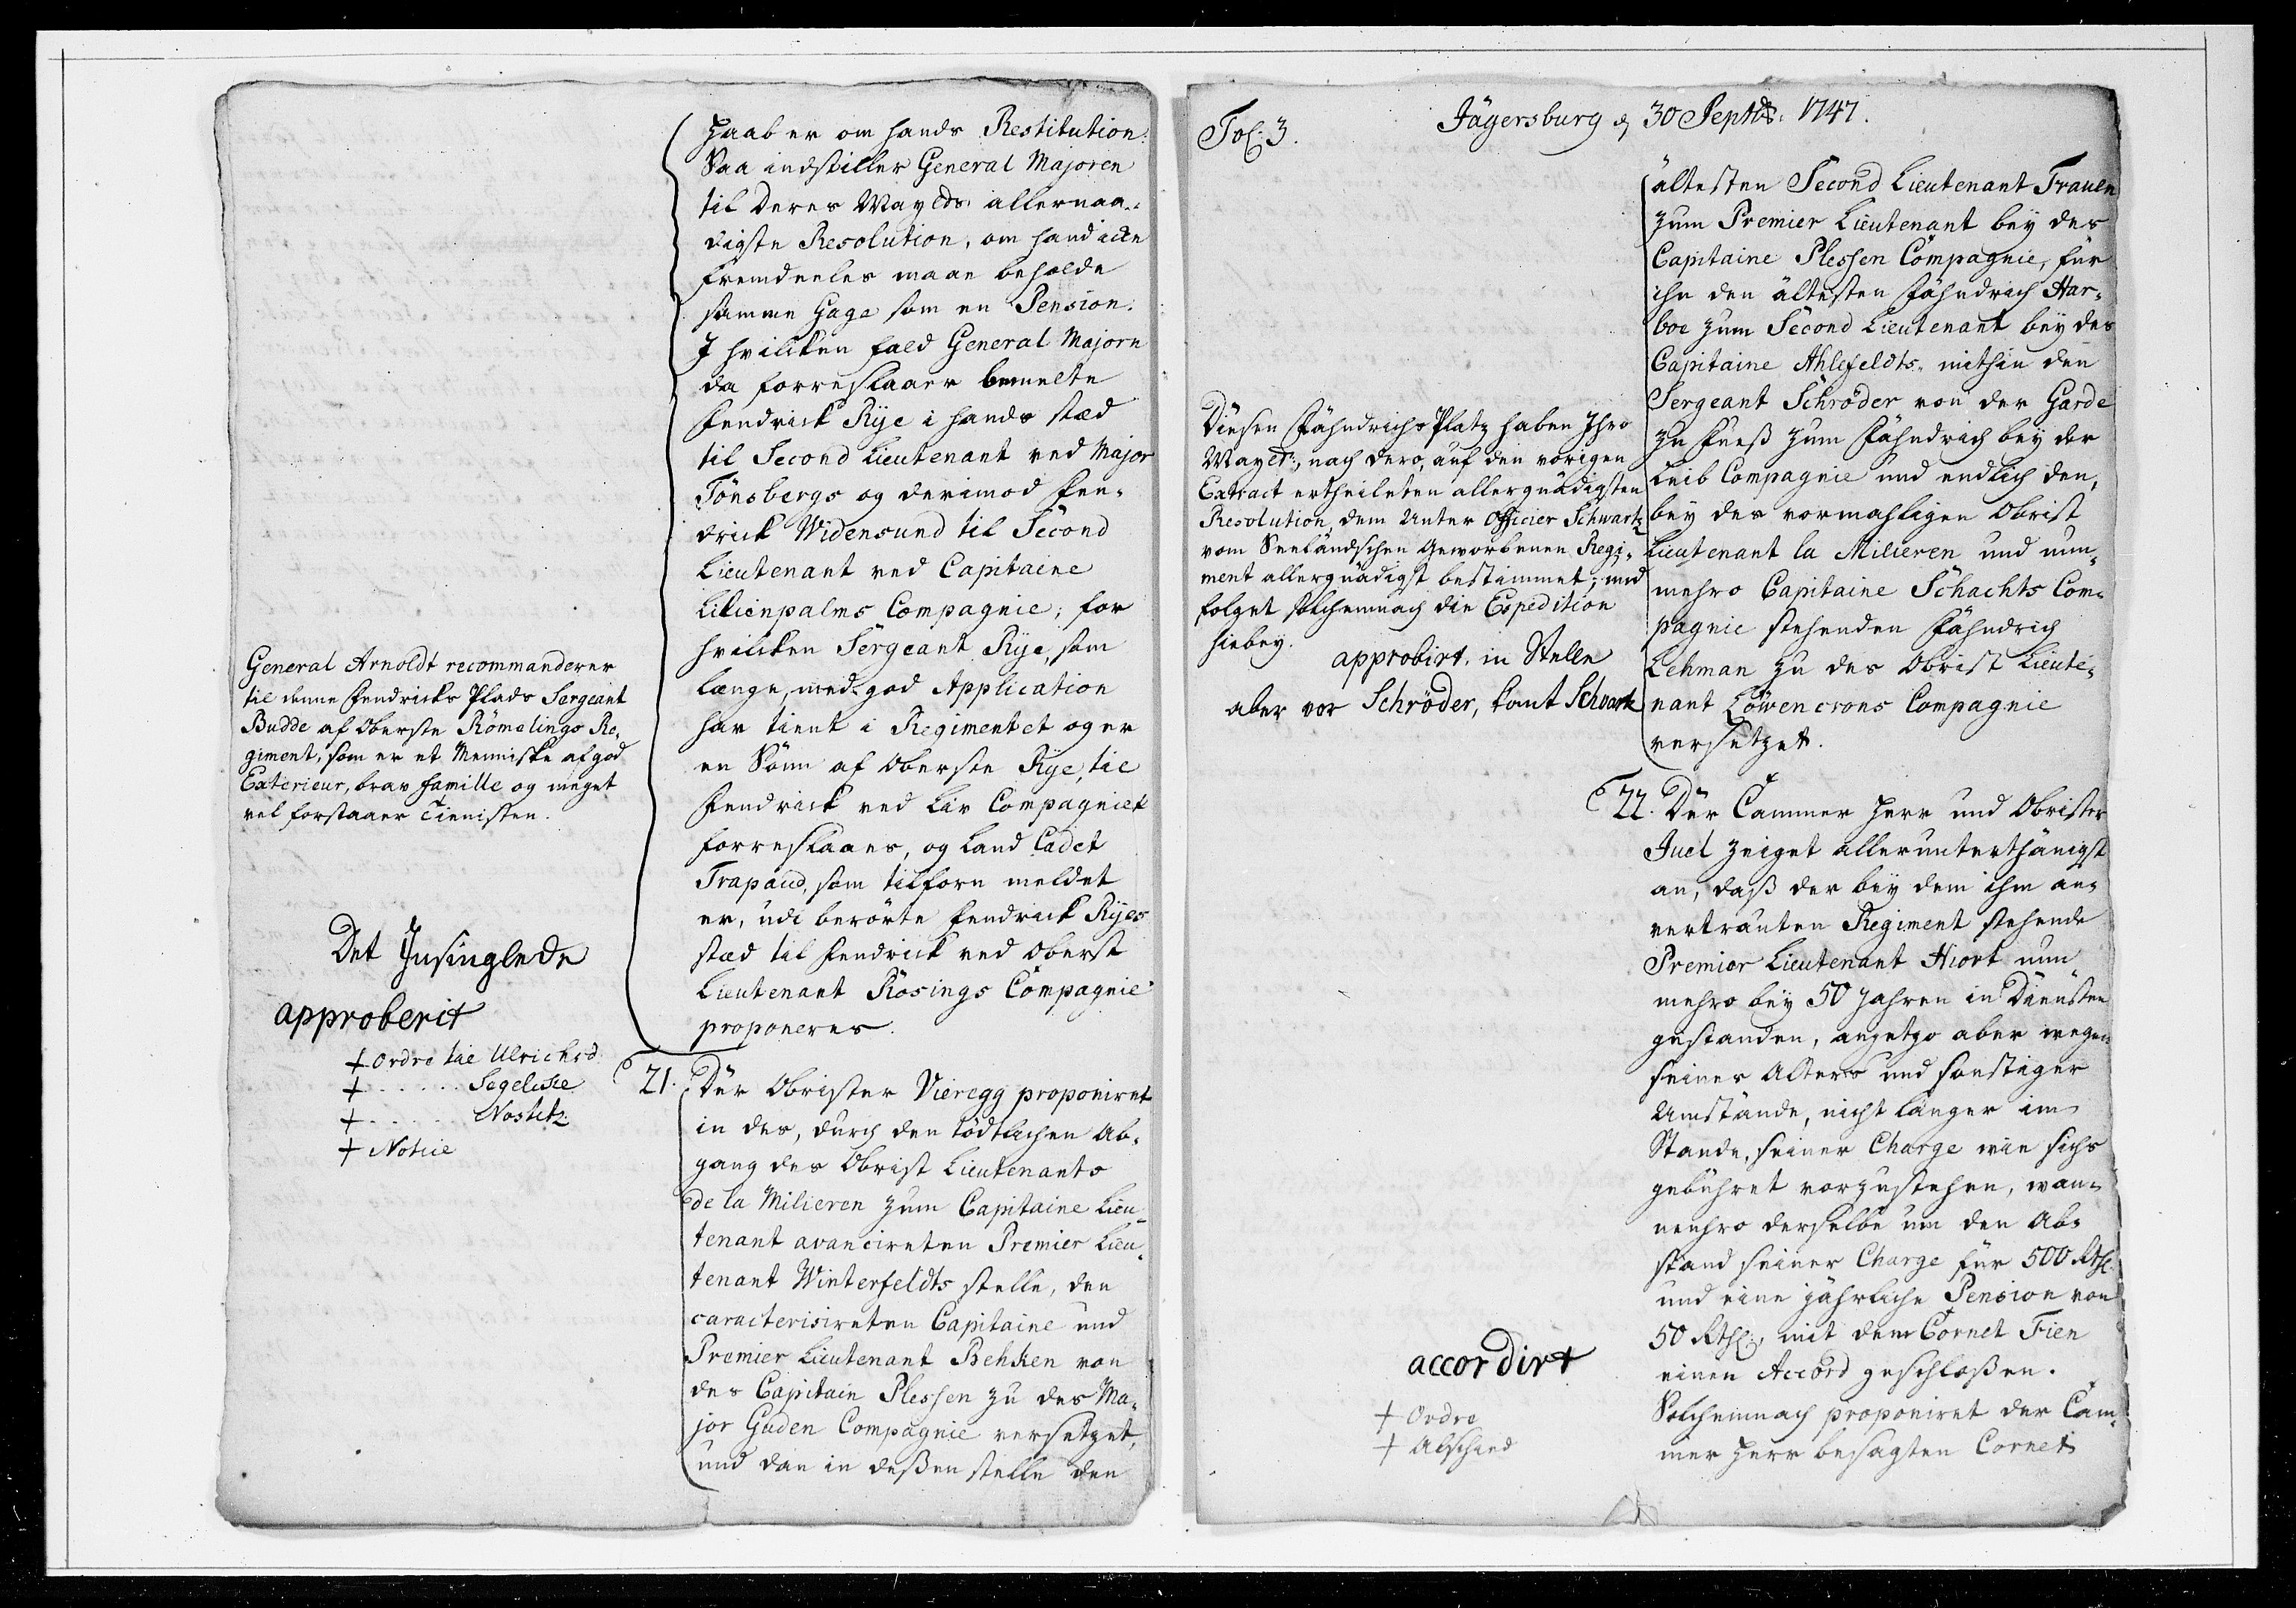 haab er om hands Restitution.
Saa indstiller General Majoren
til Deres Mayts. allernaa-
digste Resolution, om hand icke
fremdeeles maae beholde
samme Gage som en Pension.
I hvilcken fald General Majorn
da forreslaaer bemelte
Fendrick Rÿe i hands stæd
til Second Lieutenant ved Major
Tönsbergs og derimod Fen-
drick Widensund til Second
Lieutenant ved Capitaine
Lilienpalms Compagnie; for
hvilcken Sergeant Rÿe, som
længe, med god Application
har tient i Regimentet og er
en Sönn af Oberste Rÿe, til
Fendrick ved Liv Compagniet
forreslaaes, og Land Cadet
Trapaud, som tilforn meldet
er, udi berörte Fendrick Rÿes
stæd til Fendrick ved Oberst
Lieutenant Rösings Compagnie
proponeres.
General Arnoldt recommanderer
til denne Fendricks Plads Sergeant
Budde af Oberste Römelings Re-
giment, som er et Menniske af god
Exterieur, brav Famille og meget
vel forstaaer Tienisten.
Det Insinglede
approberit
+ Ordre til Ulrichsd.
+ . . . . . . Segelcke
+ . . . . . . Nostitz
+ Notice
21. Der Obrister Vieregg proponiret
in des, durch den tödtlichen Ab-
gang des Obrist Lieutenants
de la Milieren zum Capitaine Lieu-
tenant avancireten Premier Lieu-
tenant Winterfeldts stelle, den
caracterisireten Capitaine und
Premier Lieutenant Behken von
des Capitain Plessen zu des Ma-
jor Guden Compagnie versetzet,
und dan in deßen stelle den
Fol: 3.
Jägersburg d 30 Septbr. 1747.
ältesten Second Lieutenant Trauen
zum Premier Lieutenant bey des
Capitaine Plessen Compagnie, für
ihn den ältesten Fähndrich Har-
boe zum Second Lieutenant bey des
Capitaine Ahlefeldts, mithin den
Sergeant Schröder von der Garde
zu Fueß zum Fähndrich bey der
Leib Compagnie und endlich den,
bey des vormahligen Obrist
Lieutenant la Milieren und nun-
mehro Capitaine Schachts Com-
pagnie stehenden Fähndrich
Lehman zu des Obrist Lieute-
nant Löwencrons Compagnie
versetzet.
Diesen Fähndrichs Platz haben Ihro
Mayts:, nach dero, auf den vorigen
Extract ertheileten allergnädigsten
Resolution, dem Unter Officier Schwartz
vom Seeländschen Geworbenen Regi-
ment allergnädigst bestimmet; und
folget solchemnach die Expedition
hiebey.
approbirt, in Stelle
aber vor Schröder, komt Schwartz
22. Der Cammer Herr und Obrister
Juel zeiget allerunterthänigst
an, daß der bey dem ihm an-
vertrauten Regiment stehende
Premier Lieutenant Hiort nun
mehro bey 50 Jahren in Diensten
gestanden, anjetzo aber wegen
seines Alters und sonstiger
Umstände, nicht länger im
Stande, seiner Charge wie sichs
gebühret vorzustehen, wan-
nenhero derselbe um den Ab-
stand seiner Charge für 500 Rthl:
und eine jährliche Pension von
50 Rthl:, mit dem Cornet Fien
einen Accord geschloßen.
Solchemnach proponiret der Cam-
mer Herr besagten Cornet
accordirt
+ Ordre
+ Abschied